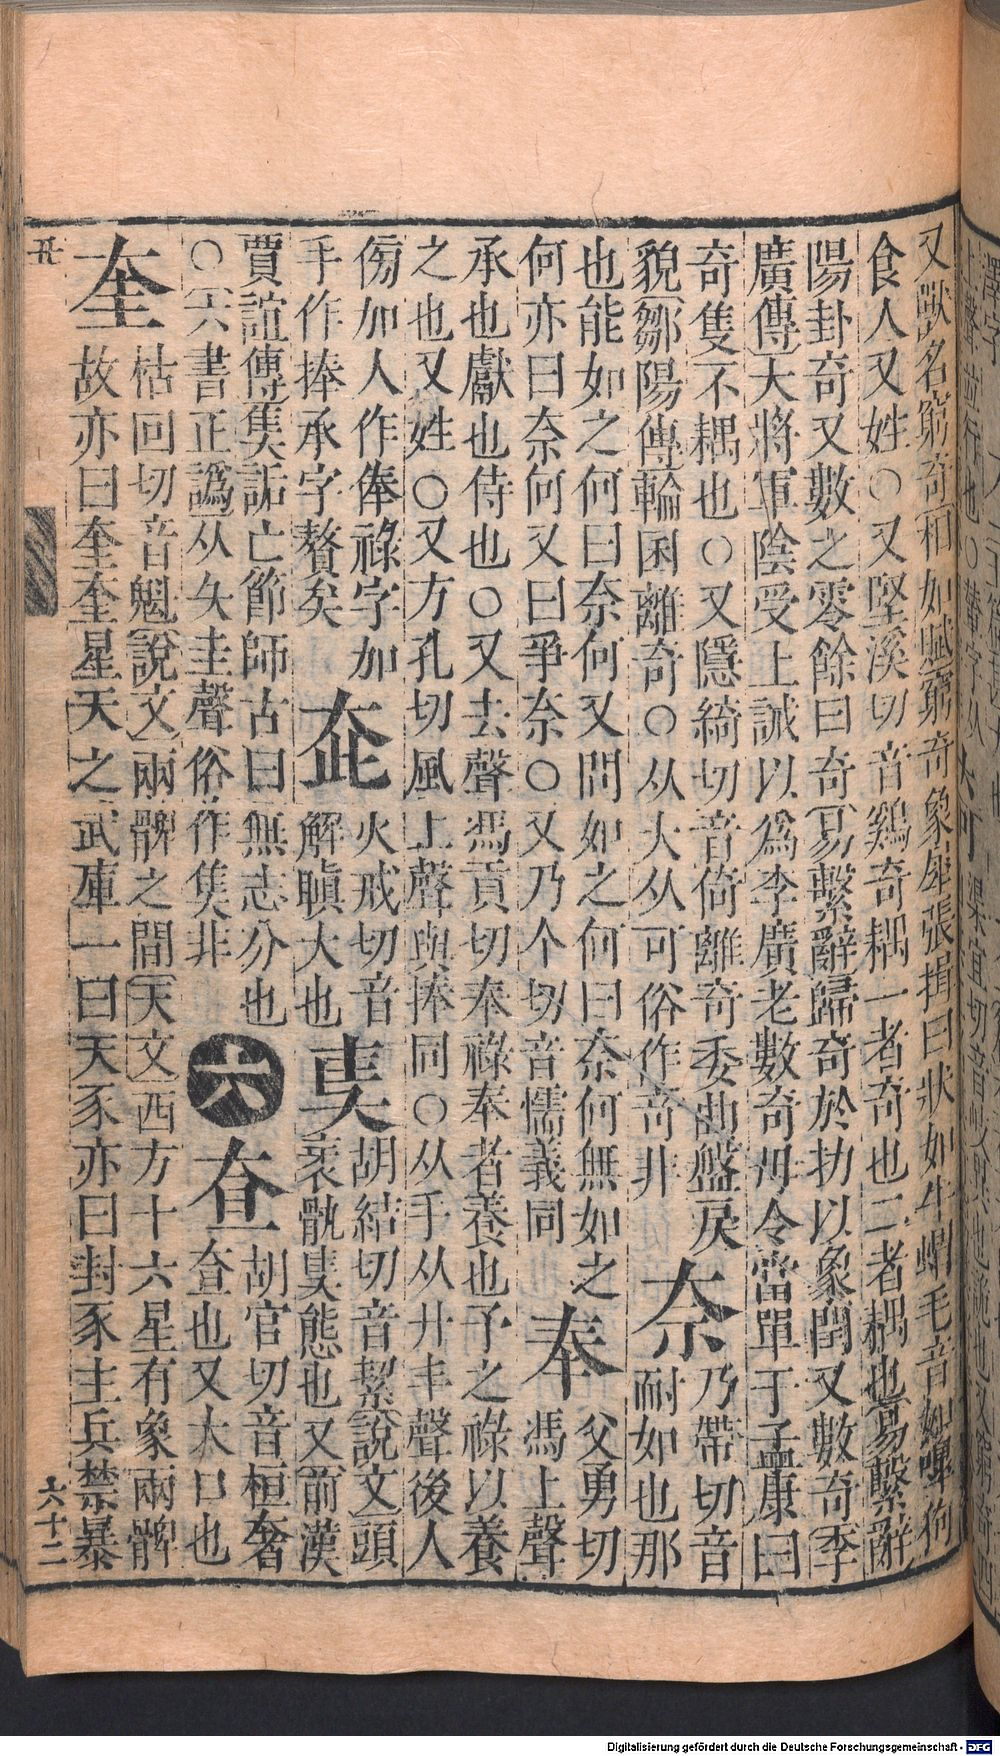 又獸名窮奇相如賦窮奇象犀張揖曰狀如牛蝟毛音如嘷狗
食人又姓○又堅溪切音鷄奇耦一者奇也二者耦也易繫辭
陽卦奇又數之零餘曰奇易繫辭歸奇於扐以象閏又數奇李
廣傳大將軍陰受上誡以爲李廣老數奇毋令當單于孟康曰
奇隻不耦也○又隱綺切音倚離奇委曲盤戾
貌鄒陽傳輪囷離奇○从大从可俗作竒非
奈
乃帶切音
耐如也那
也能如之何曰奈何又問如之何曰奈何無如之
何亦曰奈何又曰爭奈○又乃个切音懦義同
奉
父勇切
馮上聲
承也獻也侍也○又去聲馮貢切奉祿奉者養也予之祿以養
之也又姓○又方孔切風上聲與捧同○从手从廾丰聲後人
傍加人作俸祿字加
手作捧承字贅矣
㚗
火戒切音
解瞋大也
奊
胡結切音絜說文頭
衺骩奊態也又前漢
賈誼傳奊詬亡節師古曰無志分也
○六書正譌从夨圭聲俗作奊非
六
奆
胡官切音桓奢
奆也又大口也
奎
枯回切音魁說文兩髀之閒天文西方十六星有象兩髀
故亦曰奎奎星天之武庫一曰天豕亦曰封豕主兵禁暴
六十二
Digitalisierung gefördert durch die Deutsche Forschungsgemeinschaft - DFG